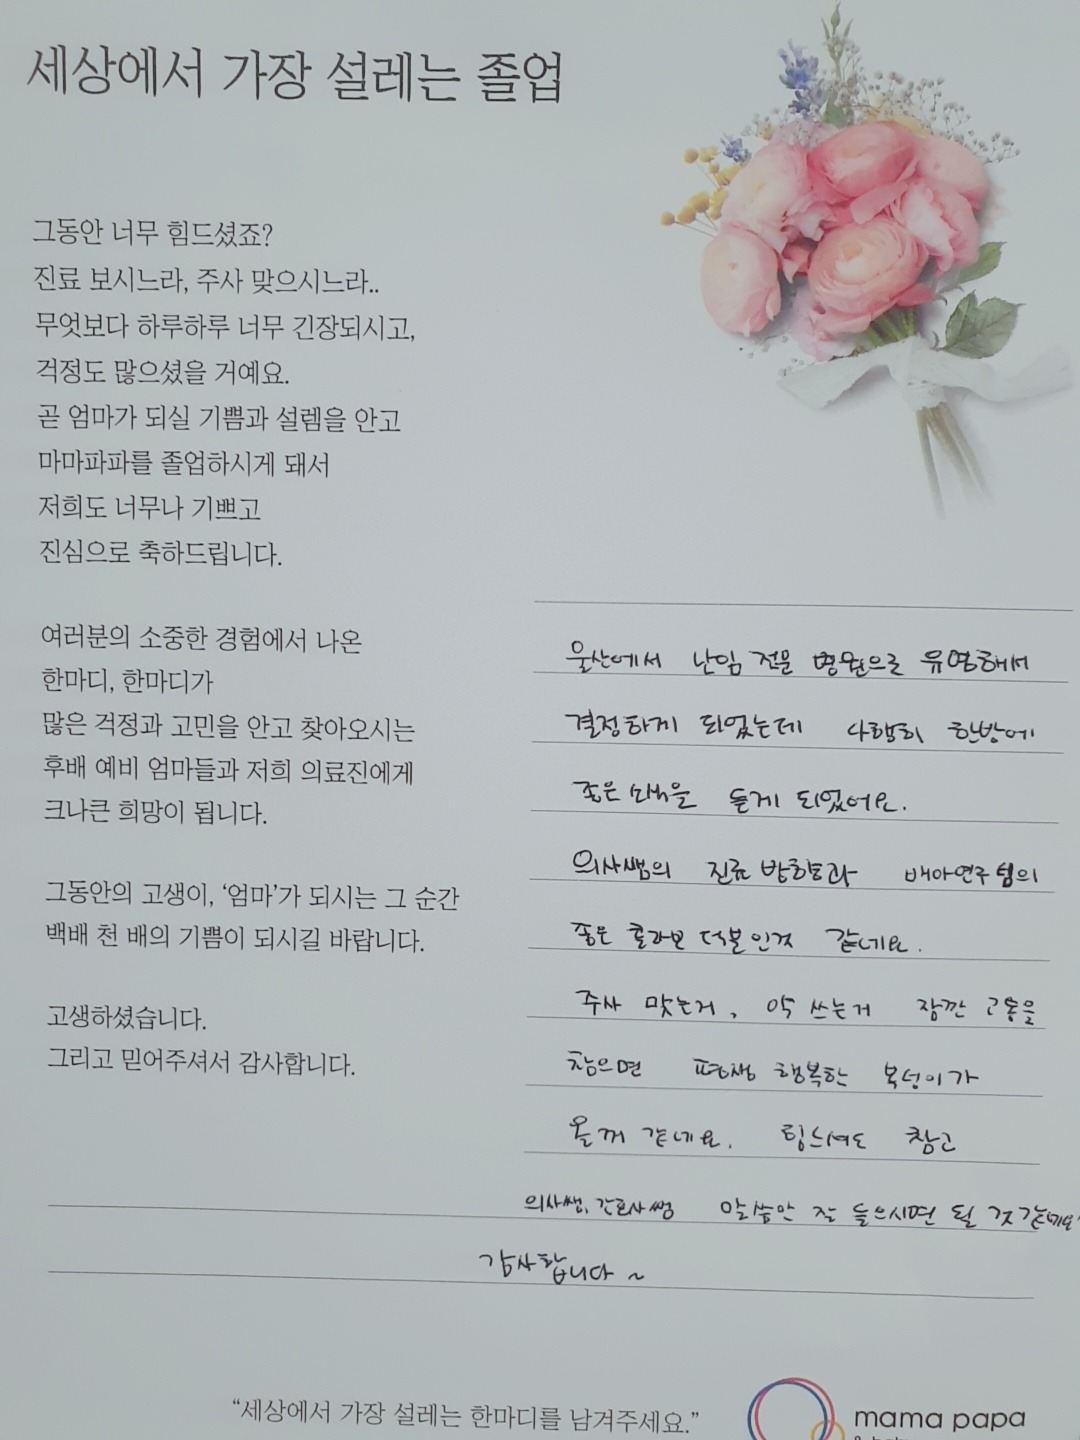 세상에서 가장 설레는 졸업
그동안 너무 힘드셨죠?
진료 보시느라, 주사 맞으시느라..
무엇보다 하루하루 너무 긴장되시고,
걱정도 많으셨을 거예요.
곧 엄마가 되실 기쁨과 설렘을 안고
마마파파를 졸업하시게 돼서
저희도 너무나 기쁘고
진심으로 축하드립니다.
여러분의 소중한 경험에서 나온
한마디, 한마디가
많은 걱정과 고민을 안고 찾아오시는
후배 예비 엄마들과 저희 의료진에게
크나큰 희망이 됩니다.
그동안의 고생이, ‘엄마’가 되시는 그 순간
백배 천 배의 기쁨이 되시길 바랍니다.
고생하셨습니다.
그리고 믿어주셔서 감사합니다.
울산에서 난임 전문 병원으로 유명해서
결정하게 되었는데 다행히 한방에
좋은 소식을 듣게 되었어요.
의사쌤의 진료 방향과 배아연구팀의
좋은 콜라보 덕분인것 같네요.
주사 맞는거, 약 쓰는거 잠깐 고통을
참으면 평생 행복한 복덩이가
올꺼 같네요. 힘드셔도 참고
의사쌤, 간호사쌤 말씀만 잘 들으시면 될 것 같네요
감사합니다~
“세상에서 가장 설레는 한마디를 남겨주세요.”
mama papa